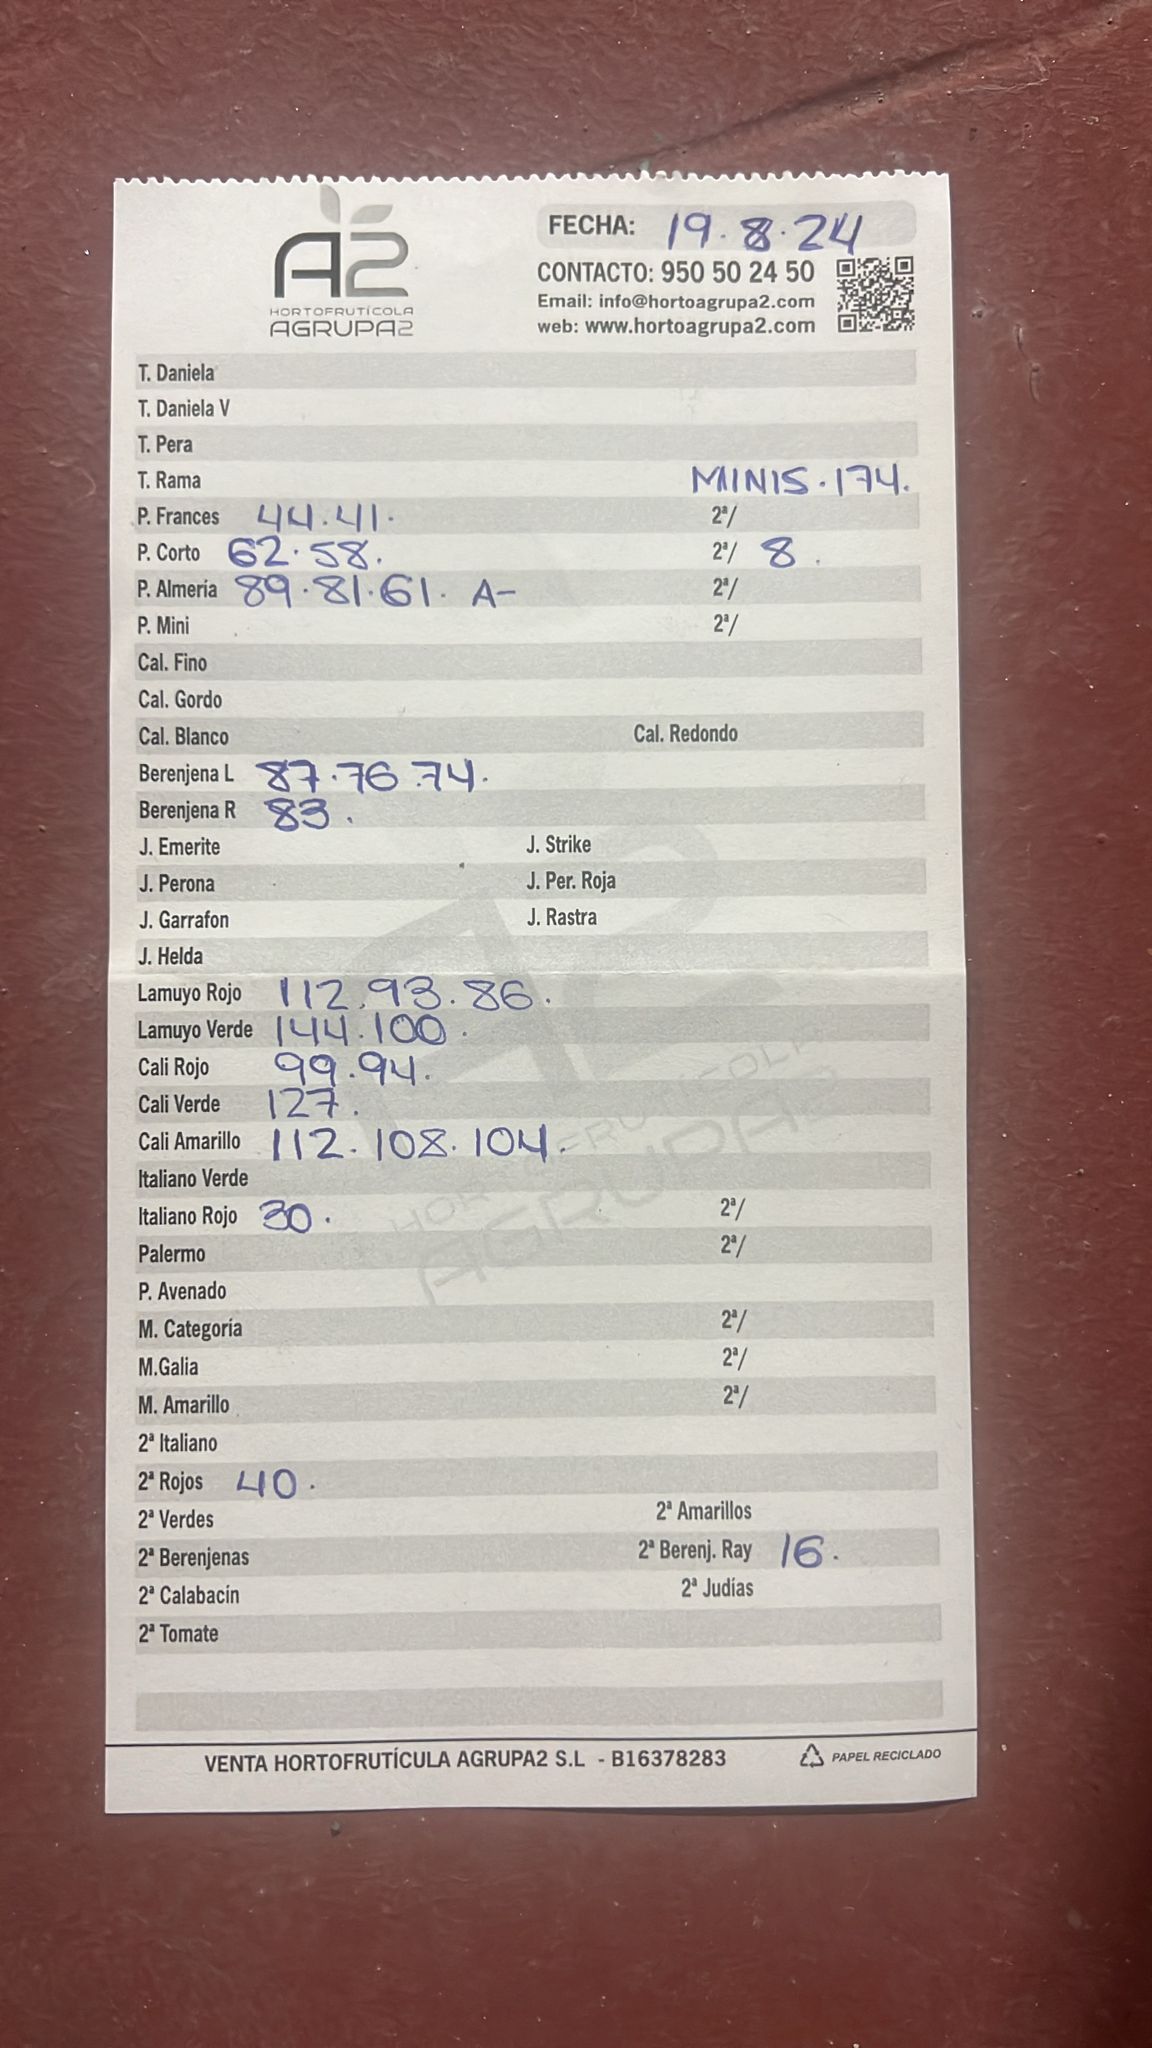 A2
HORTOFRUTÍCOLA
AGRUPA2
FECHA: 19.8.24
CONTACTO: 950 50 24 50
Email: info@hortoagrupa2.com
web: www.hortoagrupa2.com
T. Daniela
T. Daniela V
T. Pera
T. Rama MINIS.174.
P. Frances 44.41. 2ª/
P. Corto 62.58. 2ª/ 8.
P. Almería 89.81.61. A- 2ª/
P. Mini 2ª/
Cal. Fino
Cal. Gordo
Cal. Blanco Cal. Redondo
Berenjena L 87.76.74.
Berenjena R 83.
J. Emerite J. Strike
J. Perona J. Per. Roja
J. Garrafon J. Rastra
J. Helda
Lamuyo Rojo 112.93.86.
Lamuyo Verde 144.100.
Cali Rojo 99.94.
Cali Verde 127.
Cali Amarillo 112.108.104.
Italiano Verde
Italiano Rojo 30. 2ª/
Palermo 2ª/
P. Avenado
M. Categoría 2ª/
M.Galia 2ª/
M. Amarillo 2ª/
2ª Italiano
2ª Rojos 40.
2ª Verdes 2ª Amarillos
2ª Berenjenas 2ª Berenj. Ray 16.
2ª Calabacín 2ª Judías
2ª Tomate
VENTA HORTOFRUTÍCULA AGRUPA2 S.L - B16378283 PAPEL RECICLADO